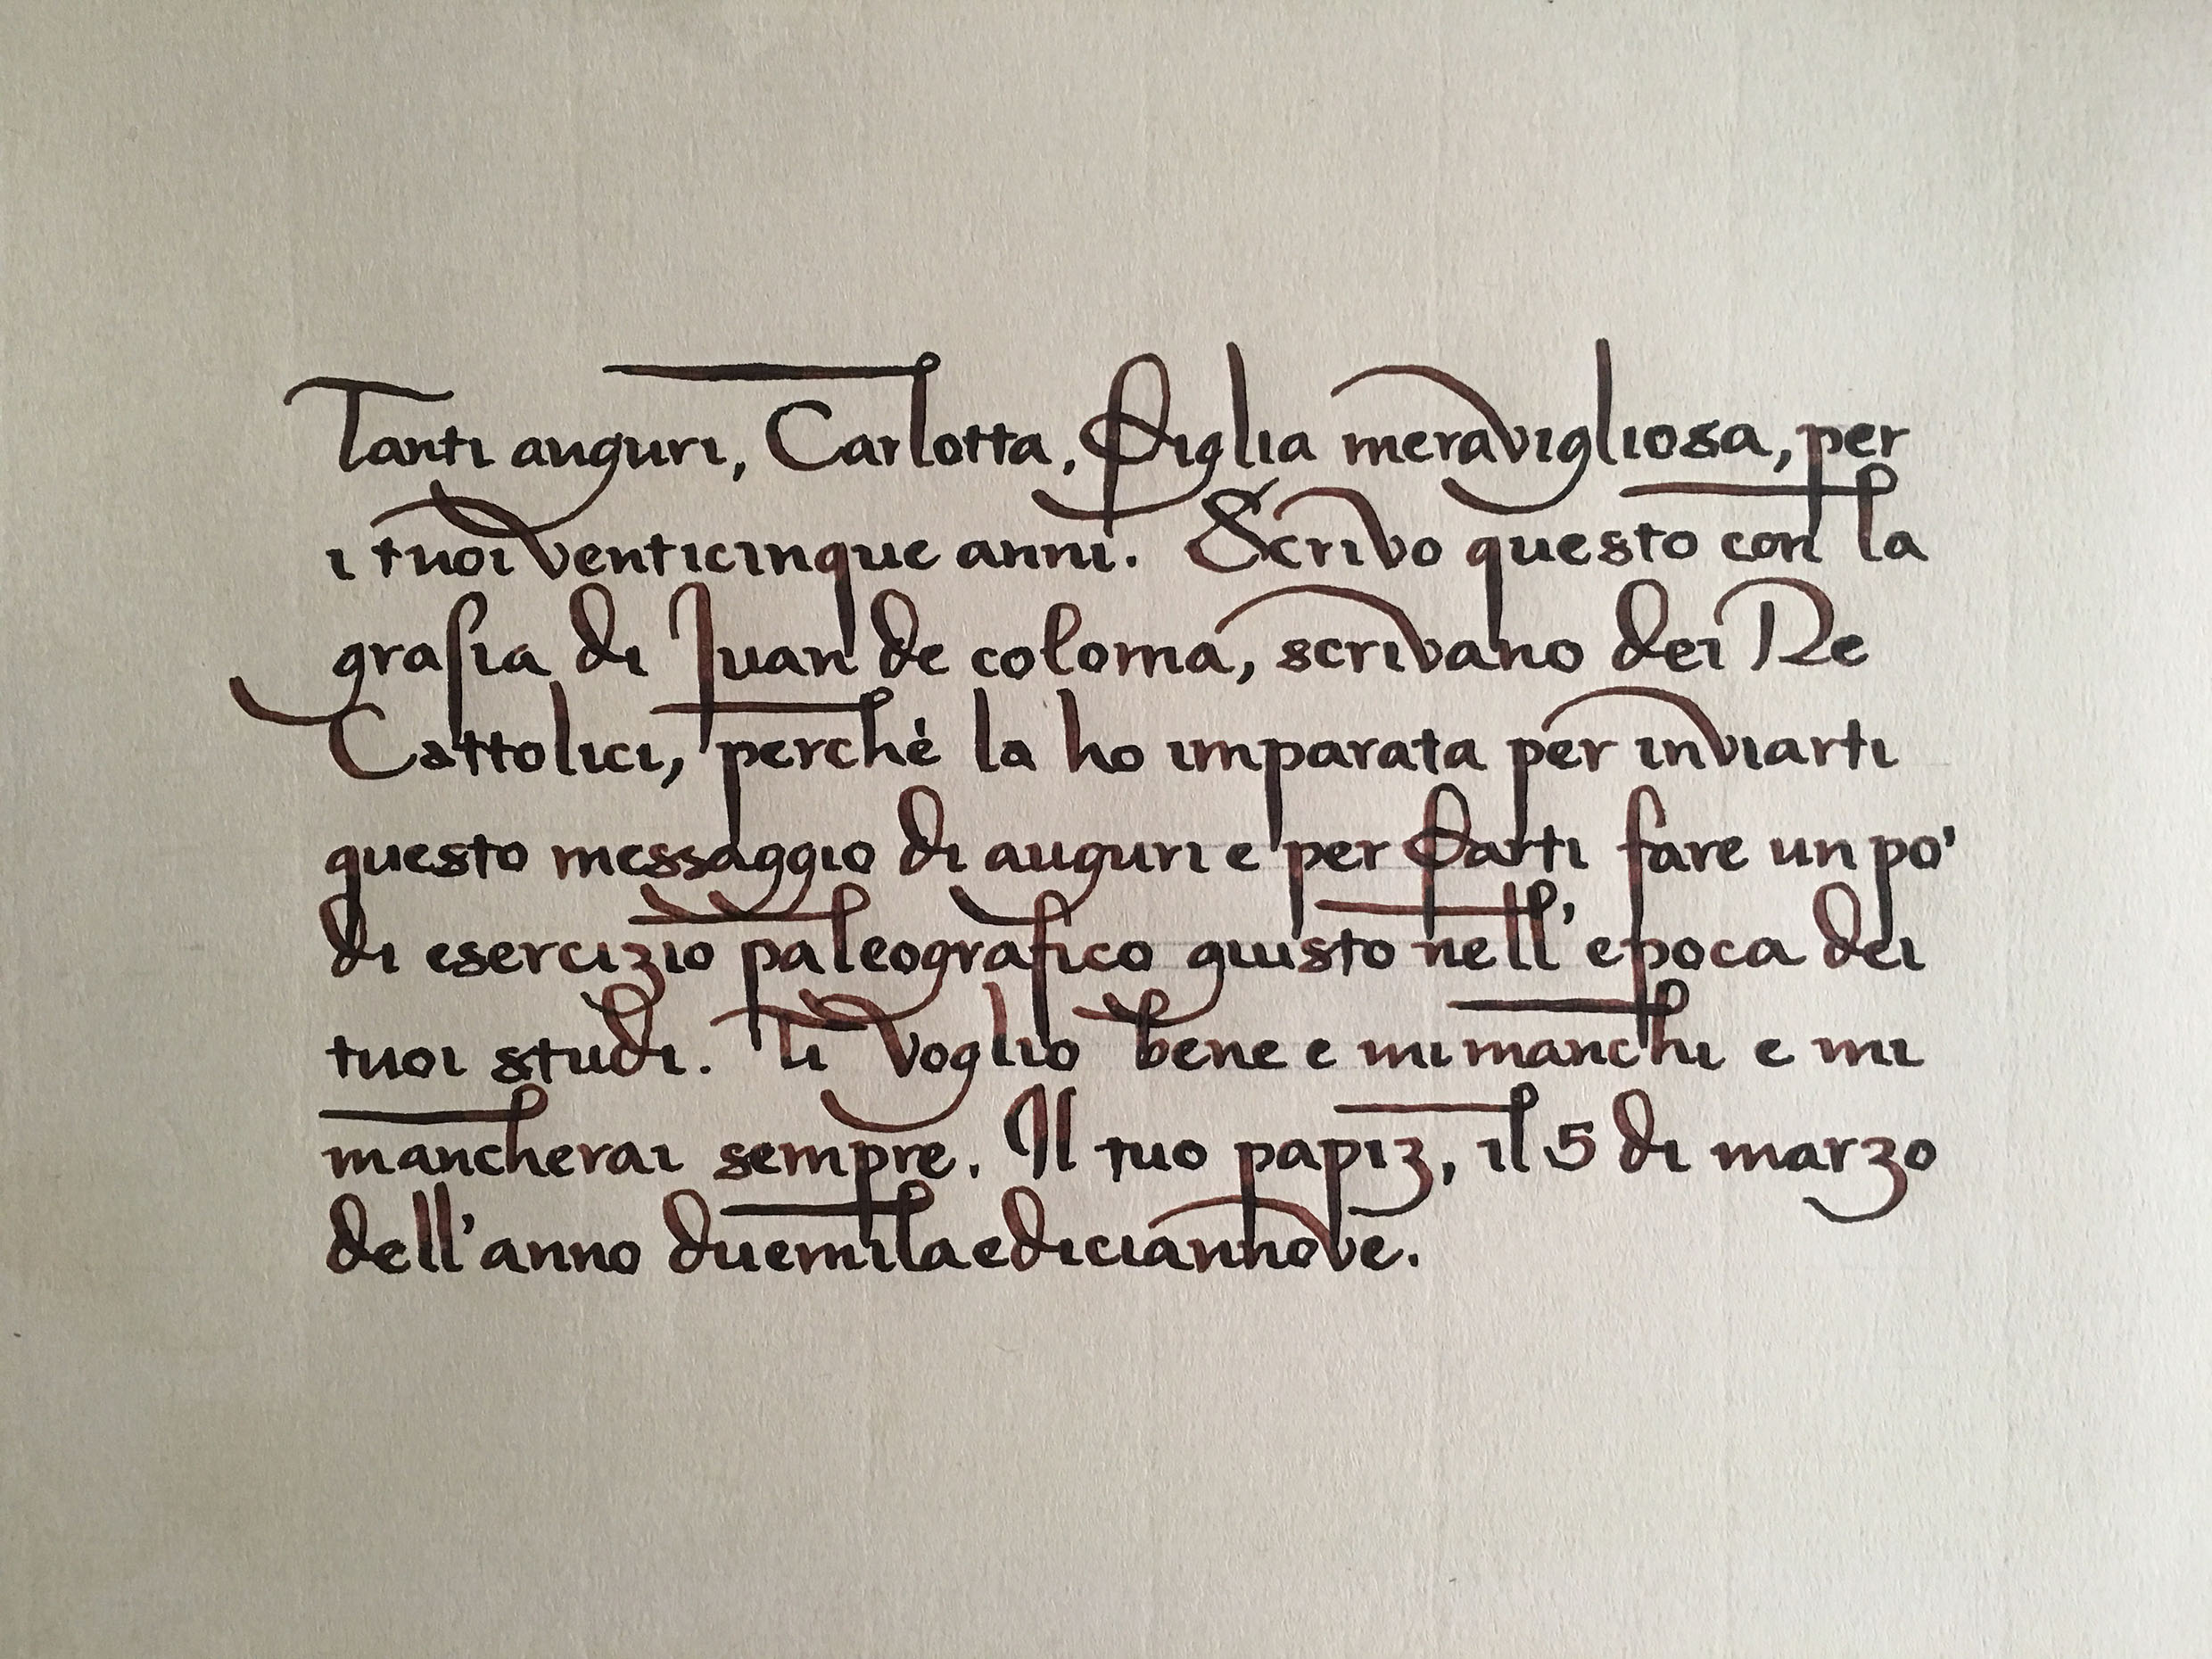 Tanti auguri, Carlotta, figlia meravigliosa, per
i tuoi venticinque anni. Scrivo questo con la
grafia di Juan de coloma, scrivano dei Re
Cattolici, perchè la ho imparata per inviarti
questo messaggio di auguri e per farti fare un po'
di esercizio paleografico giusto nell'epoca dei
tuoi studi. Ti voglio bene e mi manchi e mi
mancherai sempre. Il tuo papiz, il 5 di marzo
dell'anno duemilaediciannove.